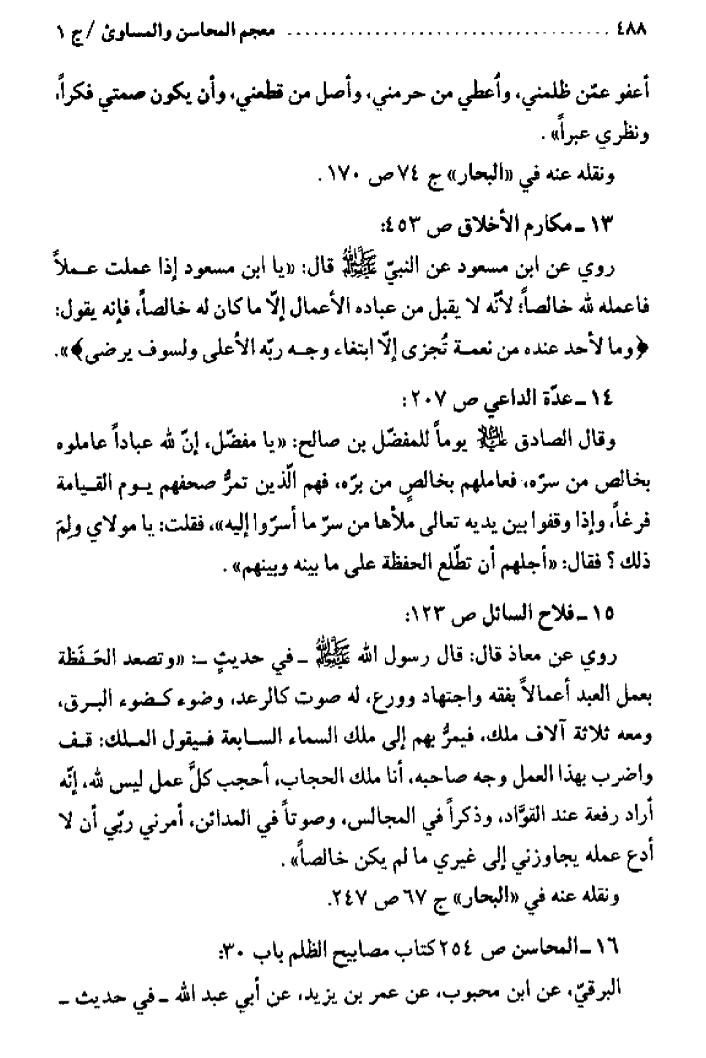 ٤٨٨ ..................................... معجم المحاسن والمساوئ / ج ١
أعفو عمّن ظلمني، وأُعطي من حرمني، وأصل من قطعني، وأن يكون صمتي فكراً،
ونظري عبراً» .
ونقله عنه في «البحار» ج ٧٤ ص ١٧٠ .
١٣ ـ مكارم الأخلاق ص ٤٥٣:
روي عن ابن مسعود عن النبيّ ﷺ قال: «يا ابن مسعود إذا عملت عملاً
فاعمله لله خالصاً؛ لأنّه لا يقبل من عباده الأعمال إلّا ما كان له خالصاً، فإنه يقول:
﴿وما لأحد عنده من نعمة تُجزى إلّا ابتغاء وجه ربّه الأعلى ولسوف يرضى﴾».
١٤ ـ عدّة الداعي ص ٢٠٧:
وقال الصادق عليه السلام يوماً للمفضّل بن صالح: «يا مفضّل، إنّ لله عباداً عاملوه
بخالص من سرّه، فعاملهم بخالصٍ من برّه، فهم الّذين تمرُّ صحفهم يوم القيامة
فرغاً، وإذا وقفوا بين يديه تعالى ملأها من سرّ ما أسرّوا إليه»، فقلت: يا مولاي ولِمَ
ذلك ؟ فقال: «أجلهم أن تطّلع الحفظة على ما بينه وبينهم» .
١٥ ـ فلاح السائل ص ١٢٣:
روي عن معاذ قال: قال رسول الله ﷺ ـ في حديثٍ ـ: «وتصعد الحَفَظة
بعمل العبد أعمالاً بفقه واجتهاد وورع، له صوت كالرعد، وضوء كضوء البرق،
ومعه ثلاثة آلاف ملك، فيمرُّ بهم إلى ملك السماء السابعة فيقول الملك: قف
واضرب بهذا العمل وجه صاحبه، أنا ملك الحجاب، أحجب كلَّ عمل ليس لله، إنّه
أراد رفعة عند القوّاد، وذكراً في المجالس، وصوتاً في المدائن، أمرني ربّي أن لا
أدع عمله يجاوزني إلى غيري ما لم يكن خالصاً» .
ونقله عنه في «البحار» ج ٦٧ ص ٢٤٧.
١٦ ـ المحاسن ص ٢٥٤ كتاب مصابيح الظلم باب ٣٠:
البرقيّ، عن ابن محبوب، عن عمر بن يزيد، عن أبي عبد الله ـ في حديث ـ